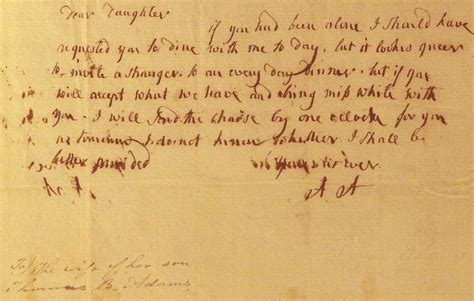 Dear Daughter
if you had been alone I should have
requested you to dine with me to day, but it looked queer
to invite a stranger to an every day dinner. but if you
will accept what we have and bring miss white with
you - I will send the chaise by one oclock for you
as tomorrow I do not know whether I shall be
better provided
yours ever
A A
To the wife of her son
Thomas B. Adams